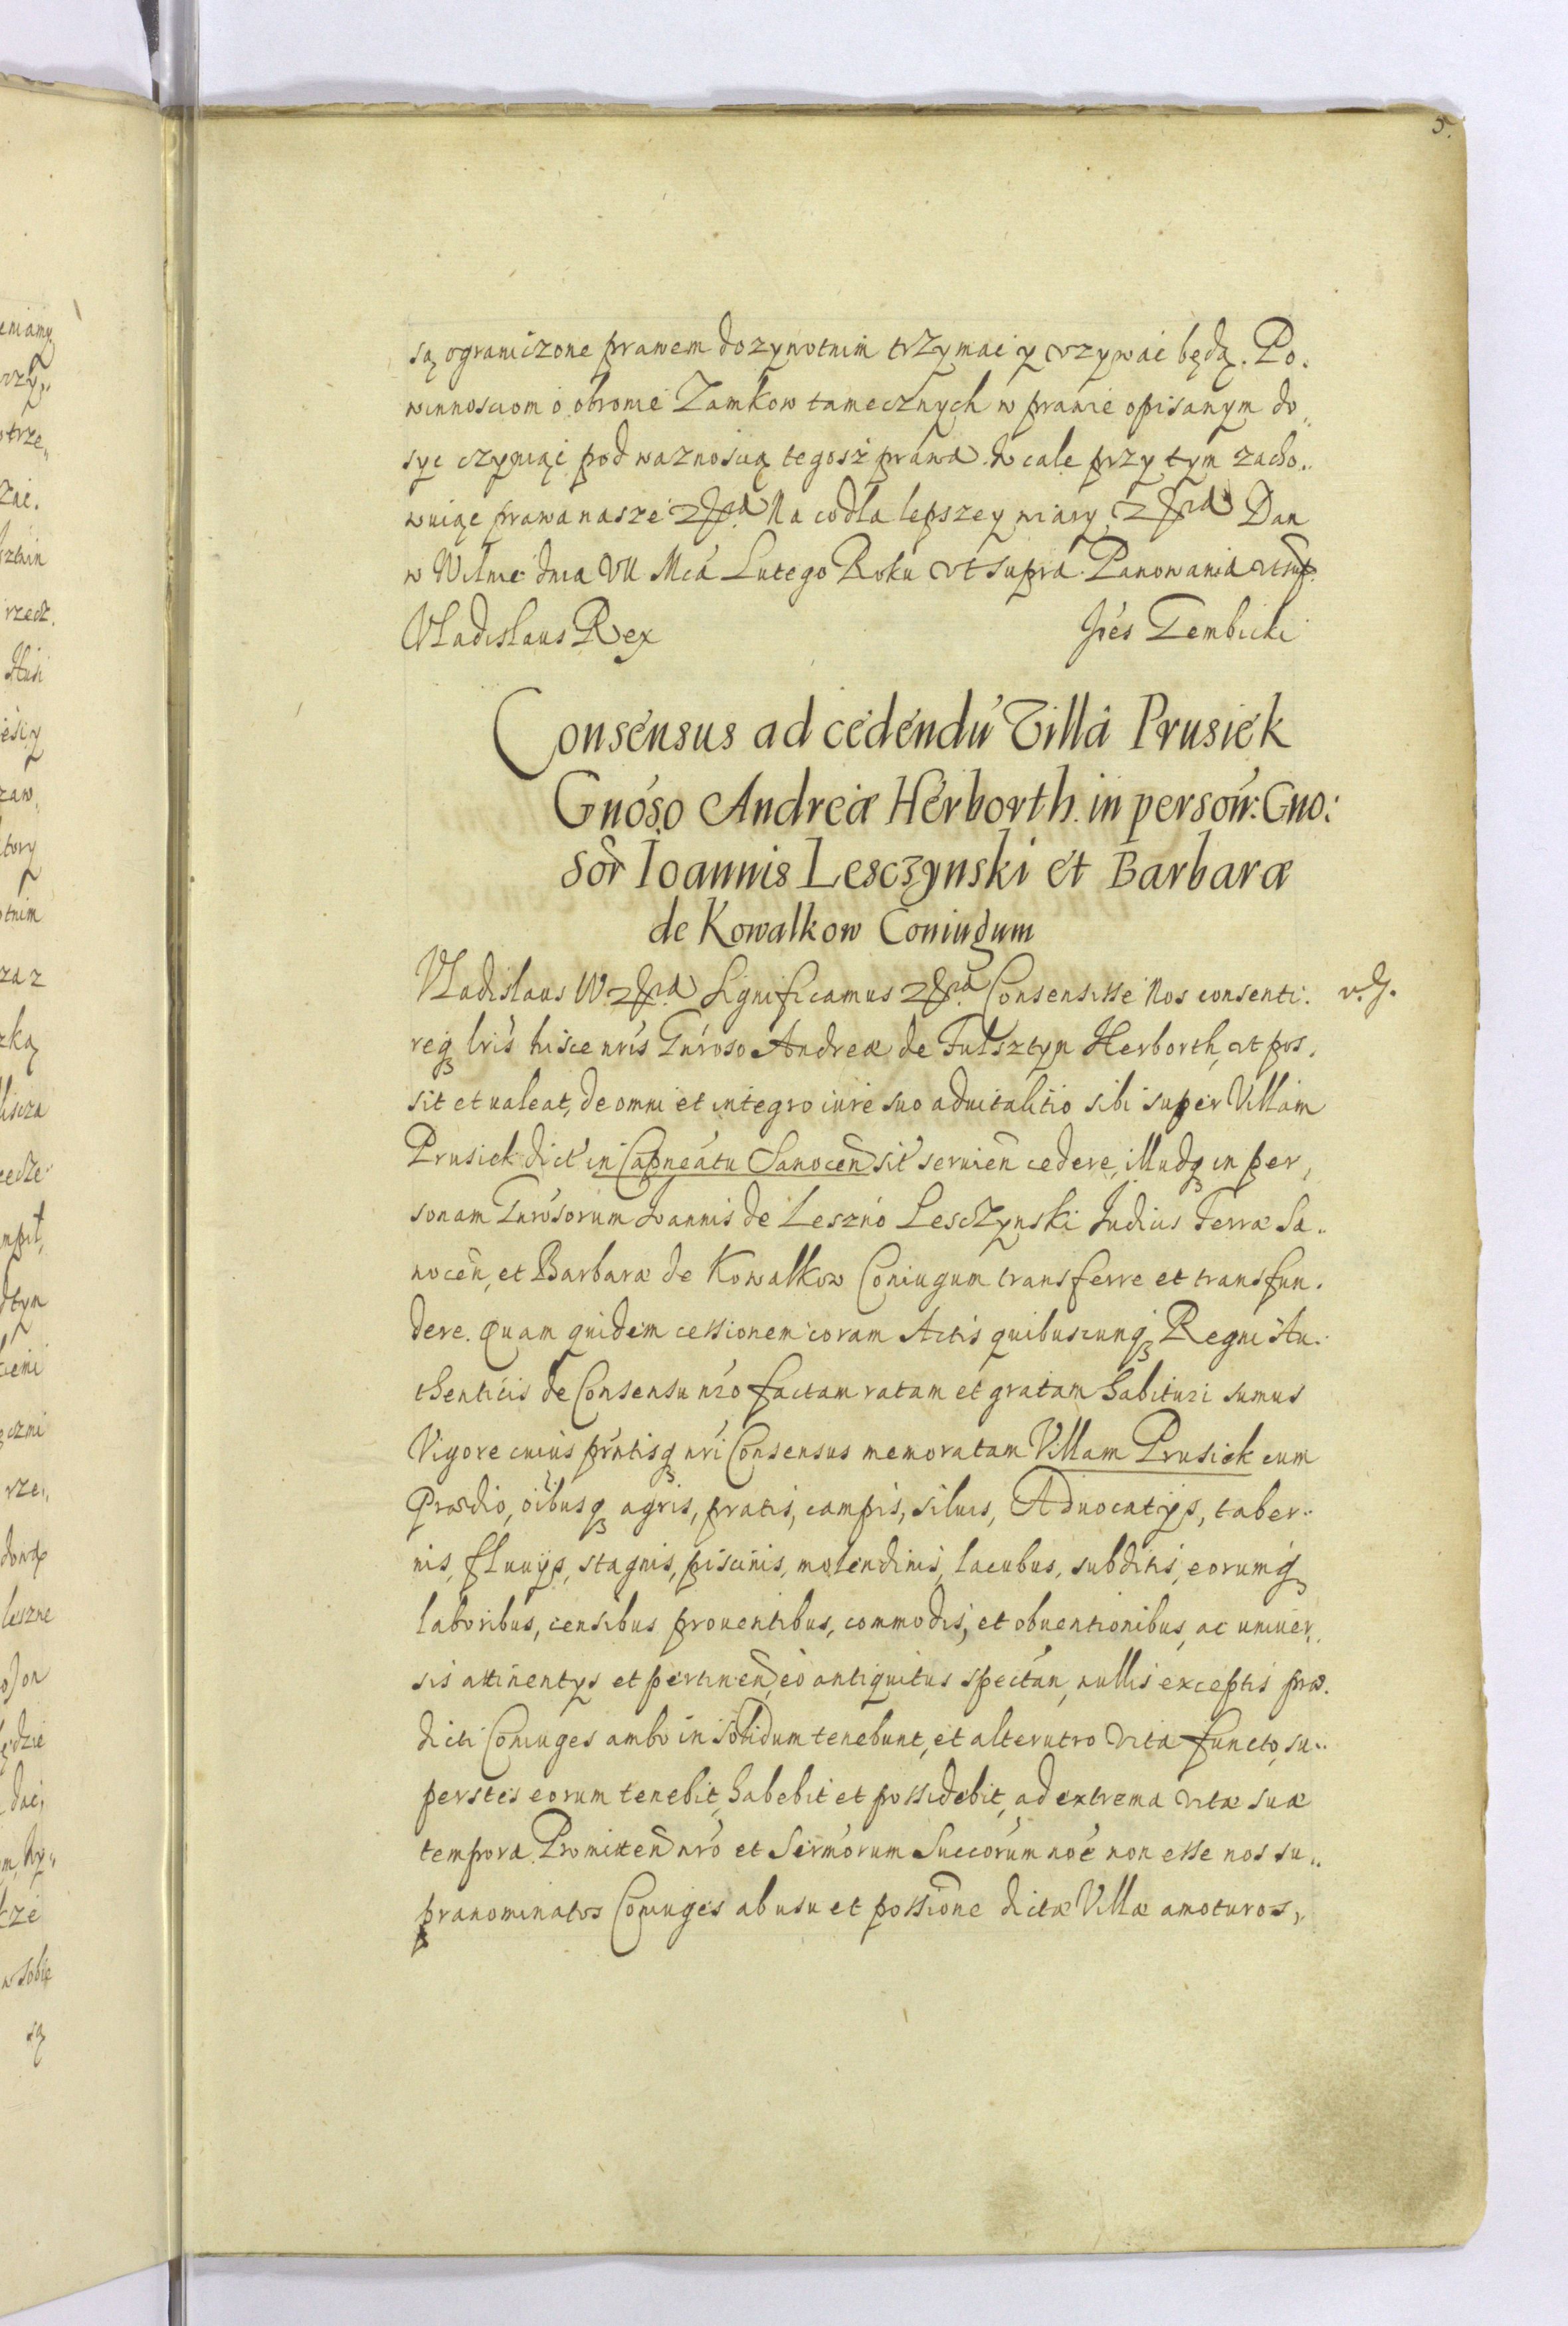 5.
są ograniczone prawem dozywotnim trzymac y vzywac będą. Po.
winnosciom o obronie Zamkow tamecznych w prawie opisanym do„
syc czyniąc pod waznoscią tegosz prawa. w cale przy tym zacho„
wuiąc prawa nasze etc. Na co dla lepszey wiary etc. Dan
w Wilnie dnia VII Mca Lutego Roku vt supra. Panowania vt sup.
Vladislaus Rex
Jres Gembicki
Consensus ad cedendũ Villã Prusiek
Gnoso Andreæ Herborth in person: Gno:
sor Ioannis Lesczynski et Barbaræ
de Kowalkow Coniugum
Vladislaus IV. etc. Significamus etc. Consensisse Nos consenti. v. J.
reqȝ lris hisce nris Gnroso Andreæ de Fulsztyn Herborth, vt pos.
sit et ualeat, de omni et integro iure suo aduitalitio sibi super Villam
Prusiek dict in Capneatu Sanocen sit seruien cedere, illudqȝ in per,
sonam Gnrosorum Joannis de Leszno Lesczynski Judicis Terræ Sa„
nocen, et Barbaræ de Kowalkow Coniugum transferre et transfun.
dere. Quam quidem cessionem coram Actis quibuscunqȝ Regni Au.
thenticis de Consensu nro factam ratam et gratam habituri sumus
Vigore cuius prntisqȝ nri Consensus memoratam Villam Prusiek cum
Prædio, oibusqȝ agris, pratis, campis, siluis, Aduocatijs, taber„
nis, fluuijs, stagnis, piscinis, molendinis, lacubus, subditis, eorumqȝ
laboribus, censibus prouentibus, commodis, et obuentionibus, ac vniuer„
sis attinentijs et pertinen, eo antiquitus spectan, nullis exceptis præ.
dicti Coniuges ambo in solidum tenebunt, et alterutro vita functo, su„
perstes eorum tenebit, habebit et possidebit, ad extrema vitæ suæ
tempora. Promitten nro et Sermorum Succorum noe non esse nos su„
pranominatos Coniuges ab usu et possione dictæ Villæ amoturos,